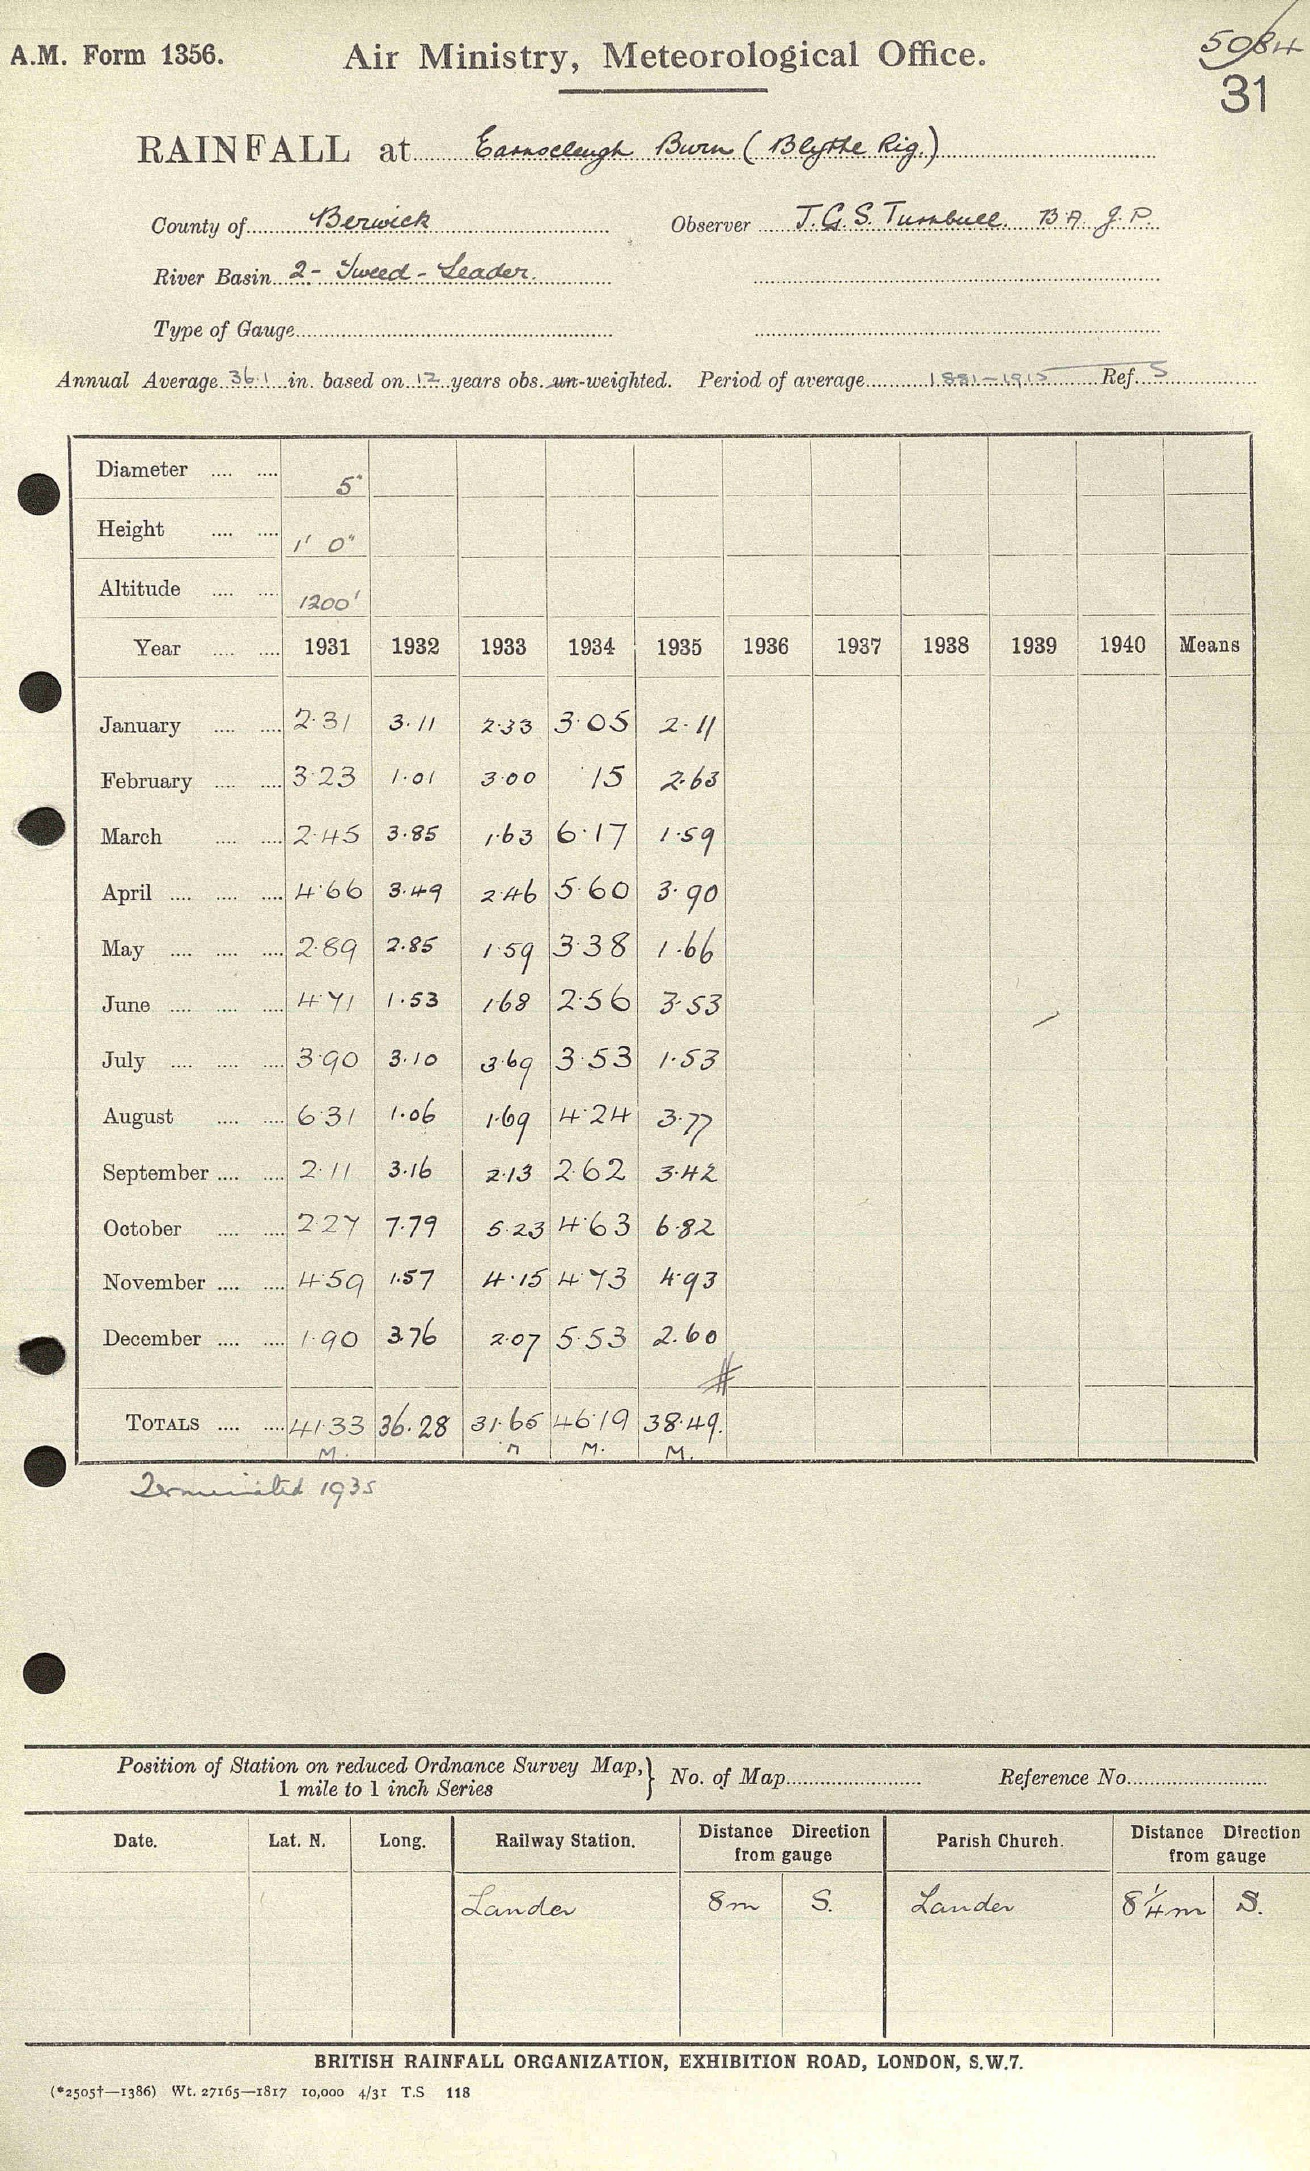 A.M. Form 1356. Air Ministry, Meteorological Office. 5084
31
RAINFALL at Earnscleugh Burn (Blythe Rig.)
County of Berwick Observer J.G.S. Turnbull. B.A. J.P.
River Basin 2 - Tweed - Leader.
Type of Gauge
Annual Average 36.1 in. based on 12 years obs. un-weighted. Period of average 1881-1915 Ref. S
Diameter .... .... 5"
Height .... .... 1' 0"
Altitude .... .... 1200'
Year .... .... 1931 1932 1933 1934 1935 1936 1937 1938 1939 1940 Means
January .... .... 2.31 3.11 2.33 3.05 2.11
February .... .... 3.23 1.01 3.00 .15 2.63
March .... .... 2.45 3.85 1.63 6.17 1.59
April .... .... .... 4.66 3.49 2.46 5.60 3.90
May .... .... .... 2.89 2.85 1.59 3.38 1.66
June .... .... .... 4.71 1.53 1.68 2.56 3.53
July .... .... .... 3.90 3.10 3.69 3.53 1.53
August .... .... 6.31 1.06 1.69 4.24 3.77
September .... .... 2.11 3.16 2.13 2.62 3.42
October .... .... 2.27 7.79 5.23 4.63 6.82
November .... .... 4.59 1.57 4.15 4.73 4.93
December .... .... 1.90 3.76 2.07 5.53 2.60
#
TOTALS .... .... 41.33 36.28 31.65 46.19 38.49.
M. M M. M.
Terminated 1935
Position of Station on reduced Ordnance Survey Map, } No. of Map Reference No.
1 mile to 1 inch Series
Date. Lat. N. Long. Railway Station. Distance Direction Parish Church. Distance Direction
from gauge from gauge
Lauder 8m S. Lauder 8 1/4 m S.
BRITISH RAINFALL ORGANIZATION, EXHIBITION ROAD, LONDON, S.W.7.
(*2505†—1386) Wt. 27165—1817 10,000 4/31 T.S 118